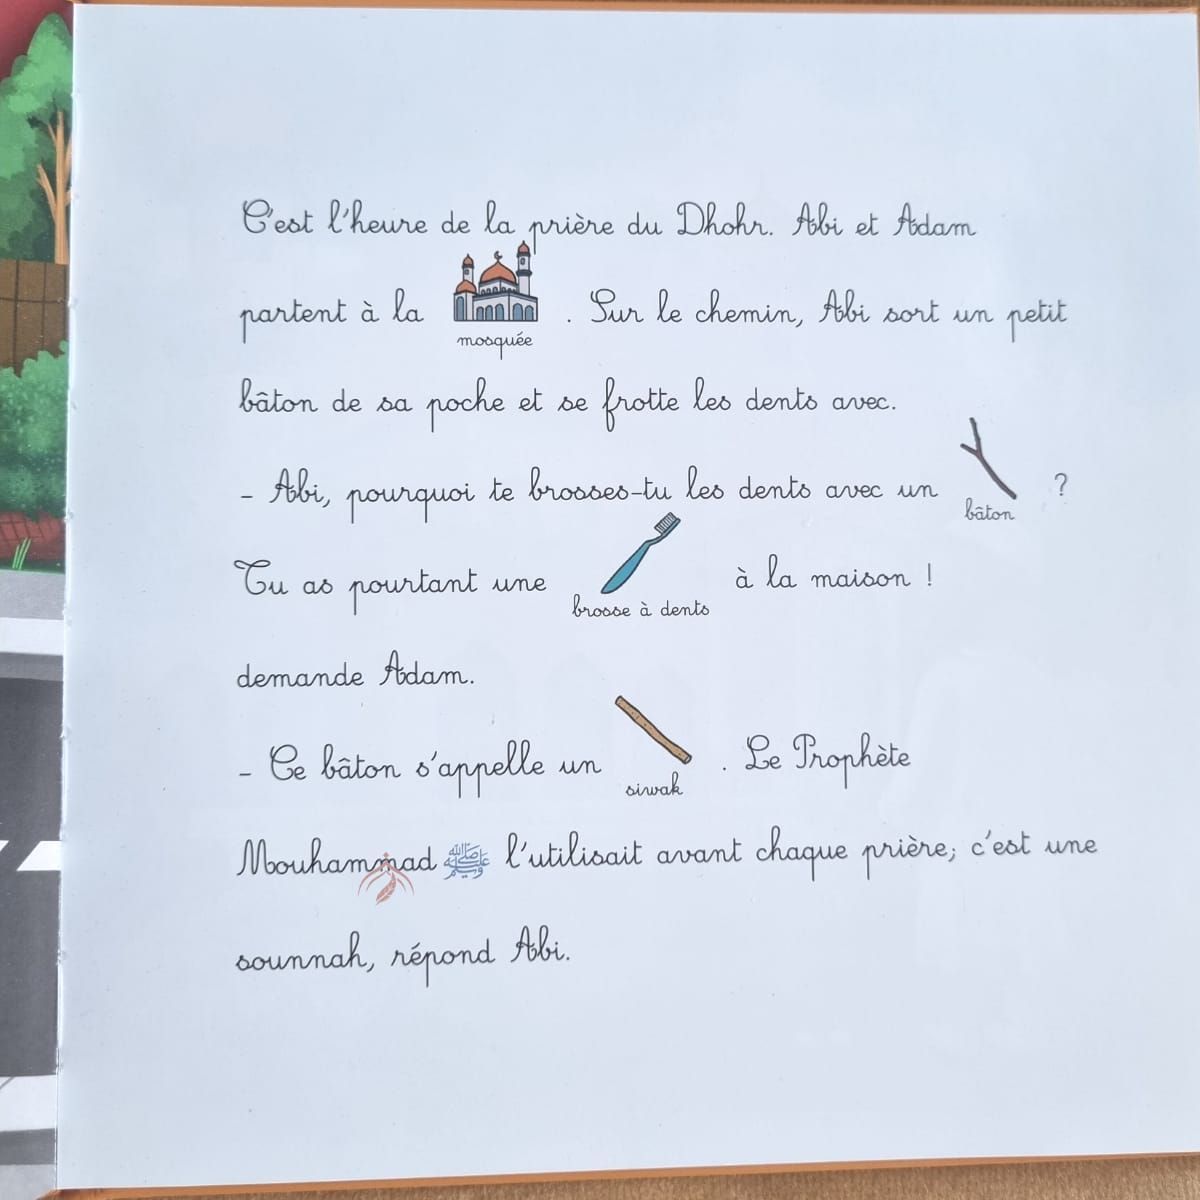 C'est l'heure de la prière du Dhohr. Abi et Adam
partent à la mosquée . Sur le chemin, Abi sort un petit
bâton de sa poche et se frotte les dents avec.
- Abi, pourquoi te brosses-tu les dents avec un bâton ?
Tu as pourtant une brosse à dents à la maison !
demande Adam.
- Ce bâton s'appelle un siwak . Le Prophète
Mouhammad ﷺ l'utilisait avant chaque prière; c'est une
sounnah, répond Abi.